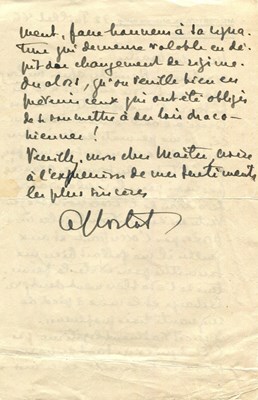 ment, fasse honneur à sa signa-
ture qui demeure valable en dé-
pit du changement de régime.
Ou alors, qu'on veuille bien en
prévenir ceux qui ont été obligés
de se soumettre à des lois draco-
niennes !
Veuillez, mon cher Maître, croire
à l'expression de mes sentiments
les plus sincères